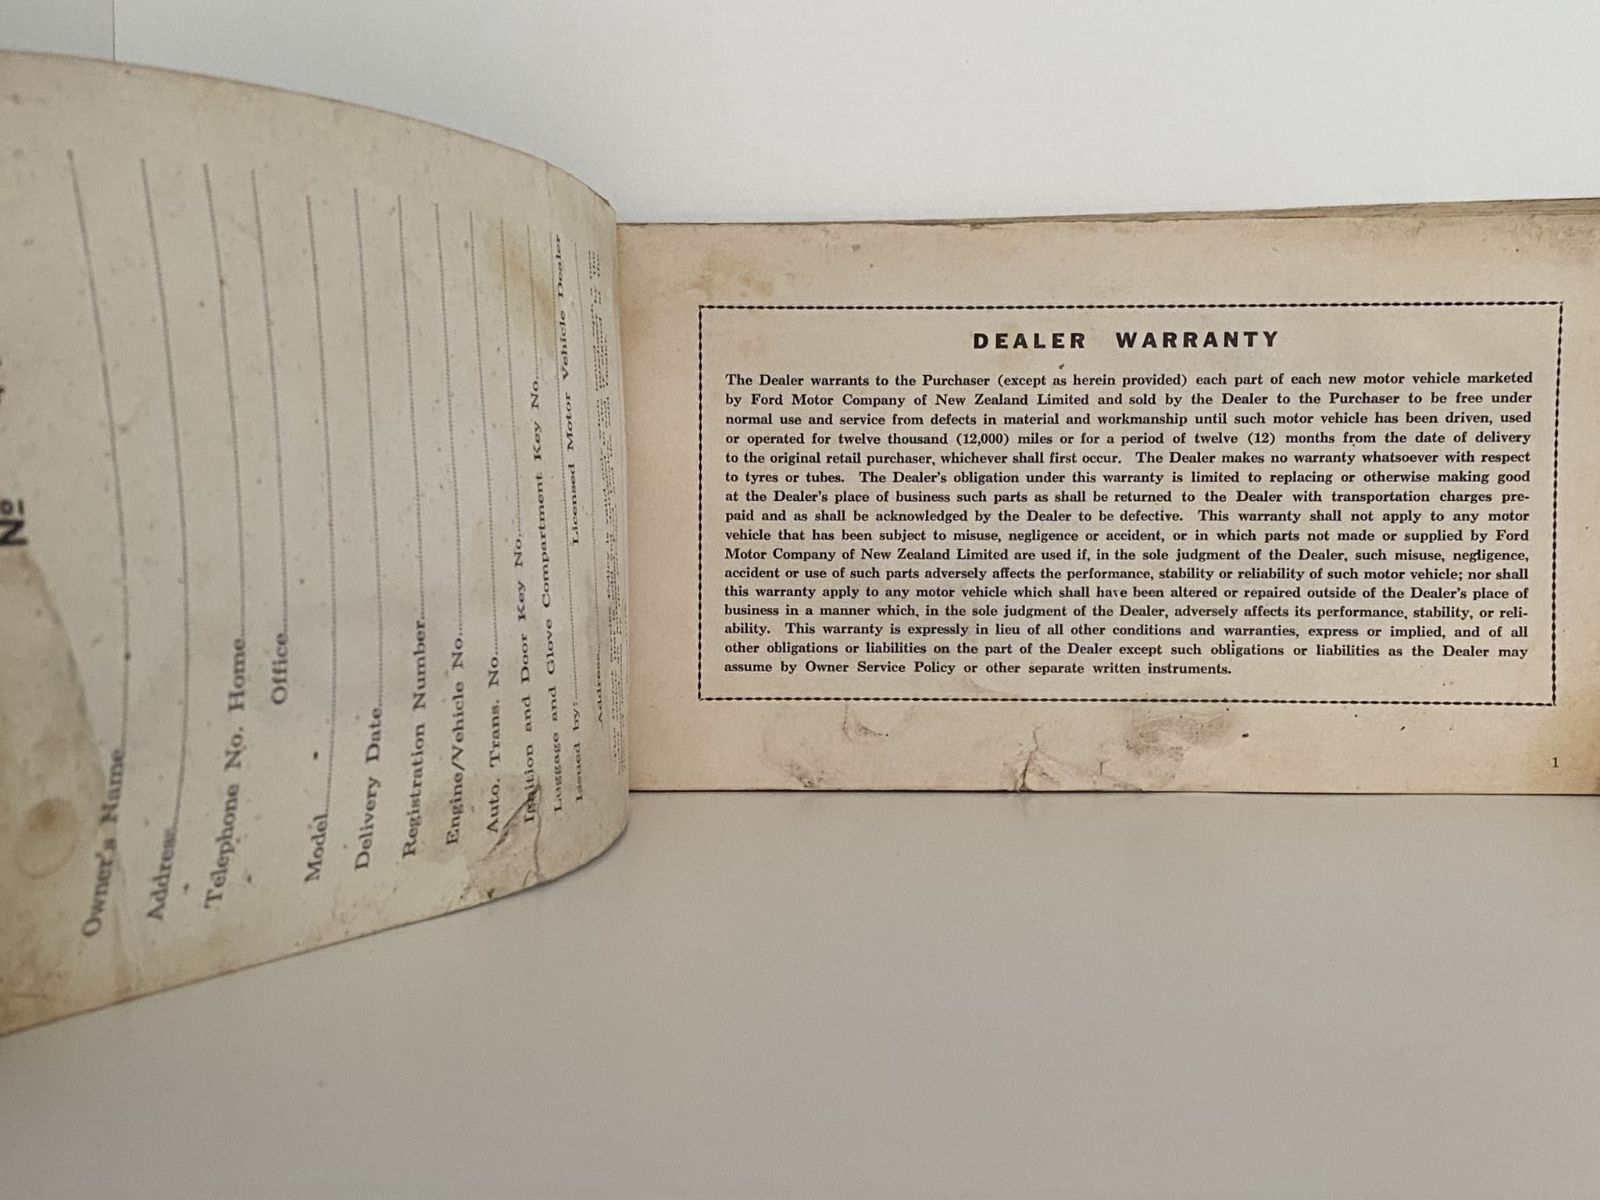 Nº
Owner's Name
Address
Telephone No. Home
Office
Model
Delivery Date
Registration Number
Engine/Vehicle No.
Auto. Trans. No.
Ignition and Door Key No.
Luggage and Glove Compartment Key No.
Issued by: Licensed Motor Vehicle Dealer
Address
DEALER WARRANTY
The Dealer warrants to the Purchaser (except as herein provided) each part of each new motor vehicle marketed
by Ford Motor Company of New Zealand Limited and sold by the Dealer to the Purchaser to be free under
normal use and service from defects in material and workmanship until such motor vehicle has been driven, used
or operated for twelve thousand (12,000) miles or for a period of twelve (12) months from the date of delivery
to the original retail purchaser, whichever shall first occur. The Dealer makes no warranty whatsoever with respect
to tyres or tubes. The Dealer's obligation under this warranty is limited to replacing or otherwise making good
at the Dealer's place of business such parts as shall be returned to the Dealer with transportation charges pre-
paid and as shall be acknowledged by the Dealer to be defective. This warranty shall not apply to any motor
vehicle that has been subject to misuse, negligence or accident, or in which parts not made or supplied by Ford
Motor Company of New Zealand Limited are used if, in the sole judgment of the Dealer, such misuse, negligence,
accident or use of such parts adversely affects the performance, stability or reliability of such motor vehicle; nor shall
this warranty apply to any motor vehicle which shall have been altered or repaired outside of the Dealer's place of
business in a manner which, in the sole judgment of the Dealer, adversely affects its performance, stability, or reli-
ability. This warranty is expressly in lieu of all other conditions and warranties, express or implied, and of all
other obligations or liabilities on the part of the Dealer except such obligations or liabilities as the Dealer may
assume by Owner Service Policy or other separate written instruments.
1